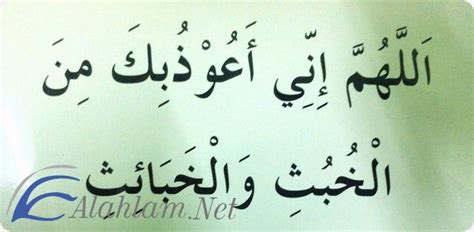 اَللَّهُمَّ إِنِّي أَعُوْذُبِكَ مِنَ
الْخُبُثِ وَالْخَبَائِثِ
Alahlam.Net